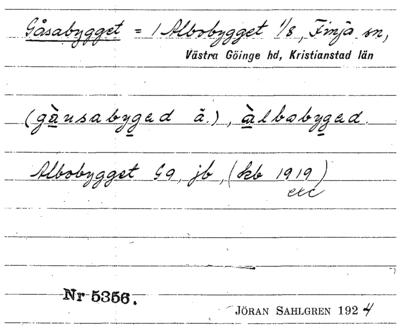 Gåsabygget = 1 Albobygget 1/8, Finja sn,
Västra Göinge hd, Kristianstad län
(gàusabygad ä.), àlbabygad.
Albobygget Ga, jb, (kb 1919)
etc
Nr 5356.
JÖRAN SAHLGREN 1924